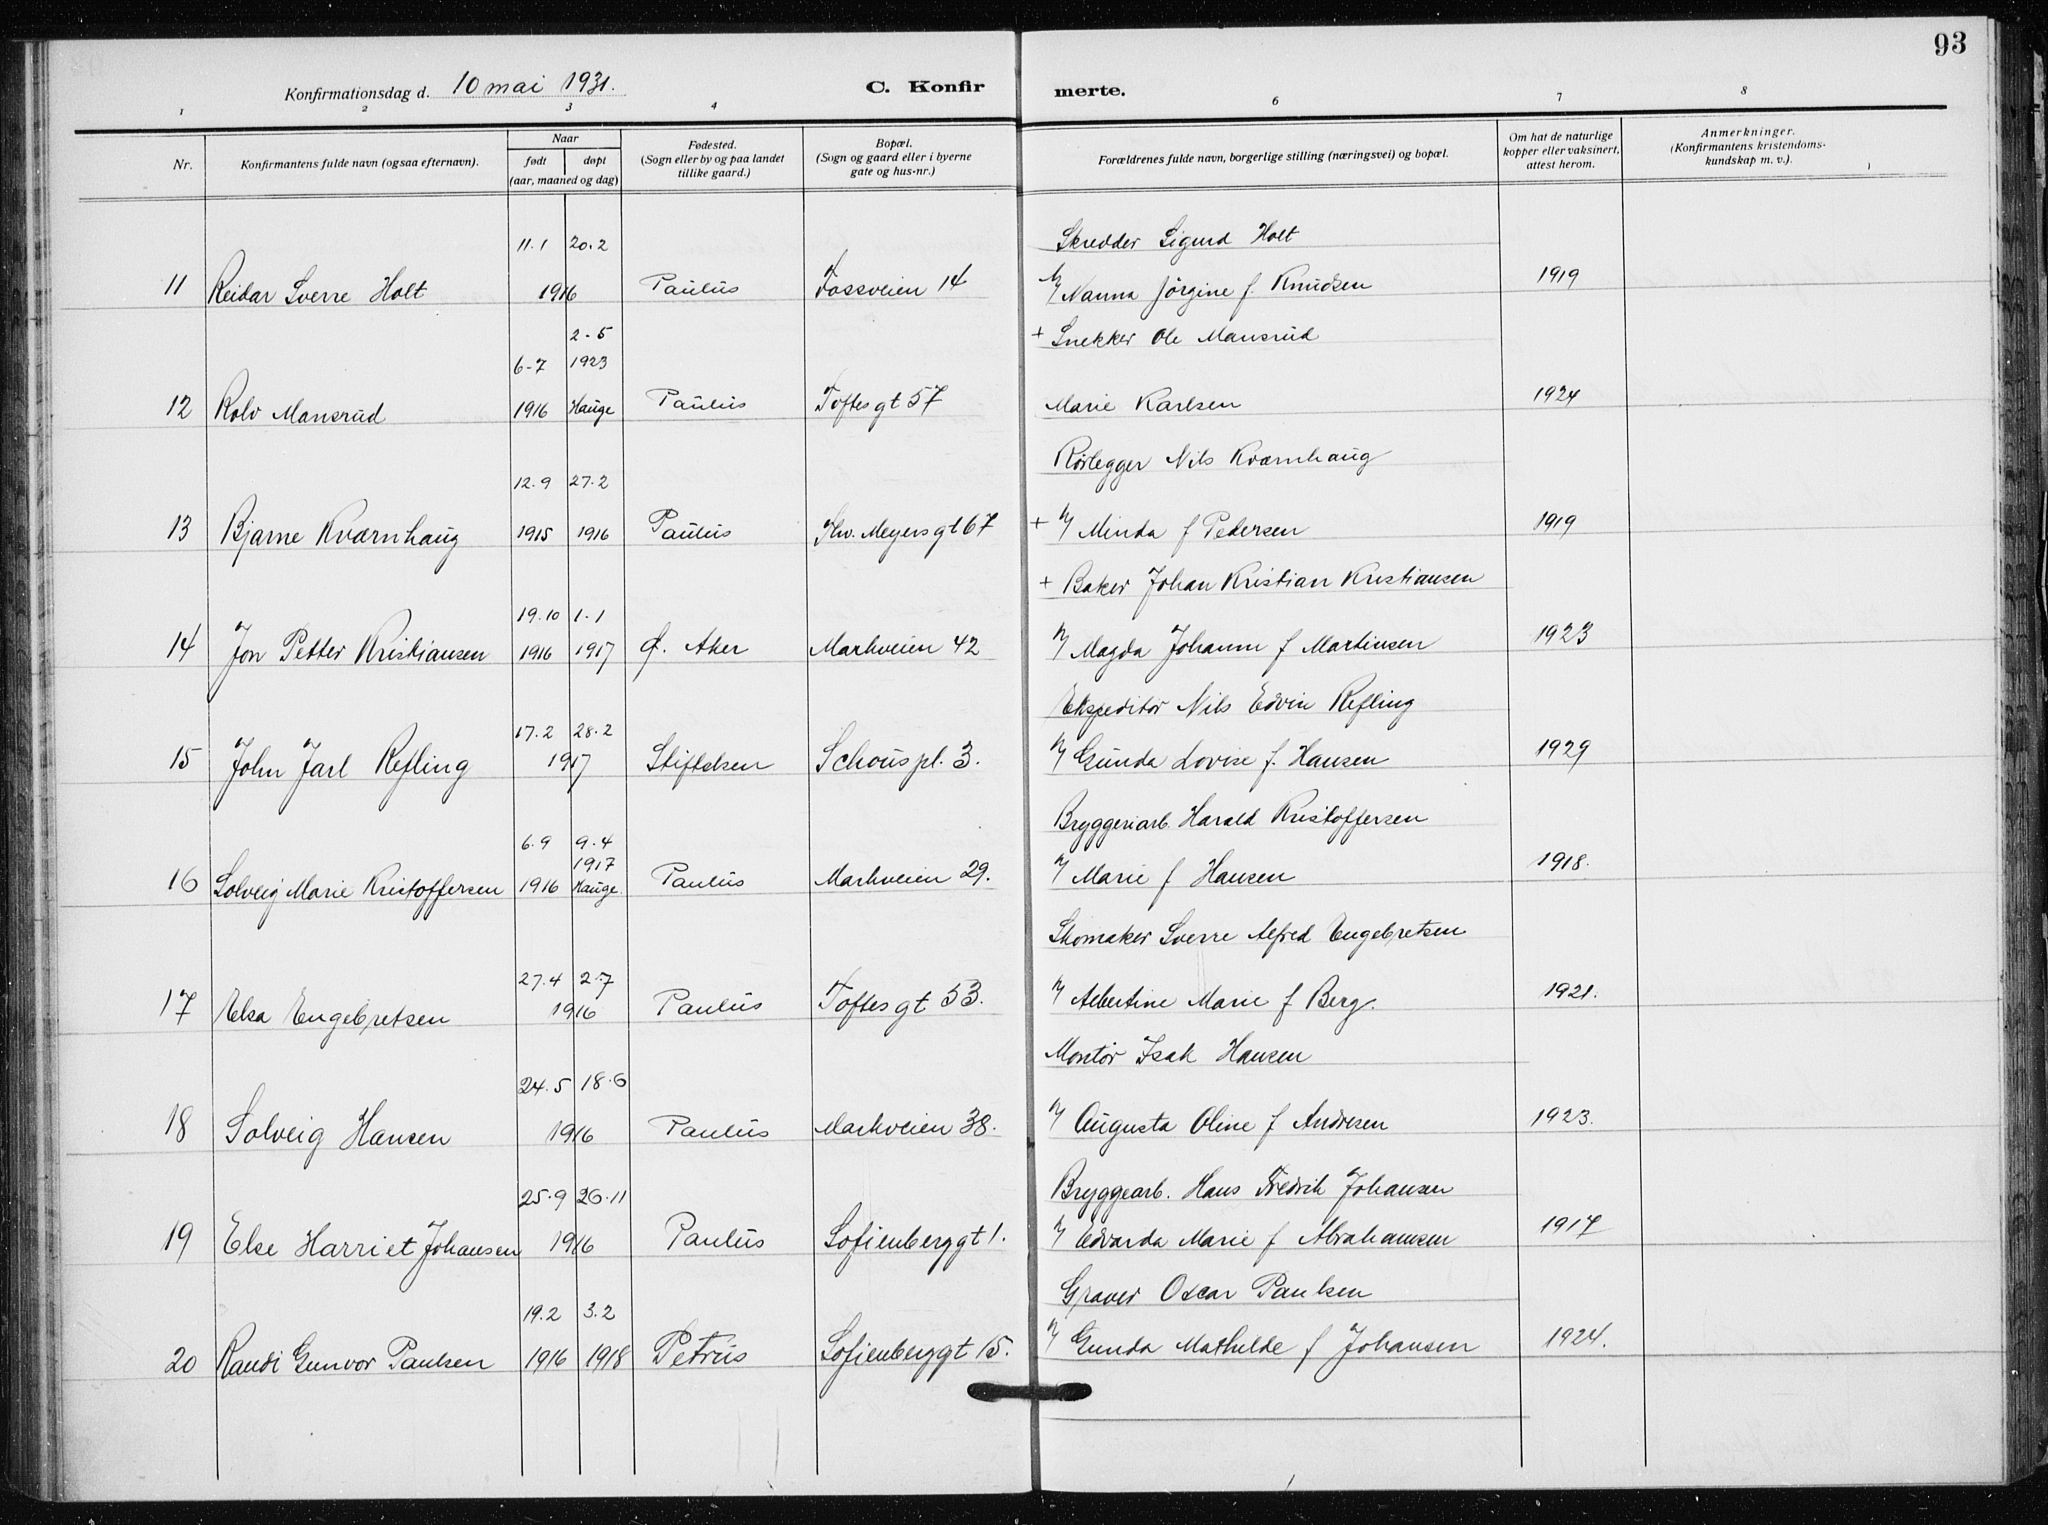 93
Konfirmationsdag d. 10 mai 1931. C. Konfir merte.
1 2 3 4 6 7 8
Nr.
Konfirmantens fulde navn (ogsaa efternavn).
Naar
født døpt
(aar, maaned og dag)
Fødested.
(Sogn eller by og paa landet
tillike gaard.)
Bopæl.
(Sogn og gaard eller i byerne
gate og hus-nr.)
Forældrenes fulde navn, borgerlige stilling (næringsvei) og bopæl.
Om hat de naturlige
kopper eller vaksinert,
attest herom.
Anmerkninger.
(Konfirmantens kristendoms-
kundskap m. v.).
11.1 20.2 Skredder Sigurd Holt
11 Reidar Sverre Holt 1916 Paulus Fossveien 14 n/ Nanna Jörgine f. Knudsen 1919
2-5 + Snekker Ole Mansrud
6-7 1923
12 Rolv Mansrud 1916 Hauge Paulus Toftesgt 57 Marie Karlsen 1924
Rörlegger Nils Kværnhaug
12.9 27.2
13 Bjarne Kværnhaug 1915 1916 Paulus Thv. Meyersgt 67 + n/ Minda f Pedersen 1919
+ Baker Johan Kristian Kristiansen
19.10 1.1
14 Jon Petter Kristiansen 1916 1917 Ø. Aker Markveien 42 n/ Magda Johanne f Martinsen 1923
Ekspeditör Nils Edvin Refling
17.2 28.2
15 John Jarl Refling 1917 Stiftelsen Schouspl. 3. n/ Gunda Lovise f. Hansen 1929
Bryggeriarb. Harald Kristoffersen
6.9 9.4
1917
16 Solveig Marie Kristoffersen 1916 Hauge. Paulus Markveien 29. n/ Marie f Hansen 1918.
Skomaker Sverre Alfred Engebretsen
27.4 2.7
17 Elsa Engebretsen 1916 Paulus Toftesgt 53. n/ Albertine Marie f Berg. 1921.
Montör Isak Hansen
24.5 18.6
18 Solveig Hansen 1916 Paulus Markveien 38. n/ Augusta Oline f Andresen 1923.
Bryggearb. Hans Fredrik Johansen
25.9 26.11
19 Else Harriet Johansen 1916 Paulus Sofienberggt 1. n/ Edvarda Marie f Abrahamsen 1917
Graver Oscar Paulsen
19.2 3.2
20 Randi Gunvor Paulsen 1916 1918 Petrus Sofienberggt 15. n/ Gunda Mathilde f Johansen 1924.